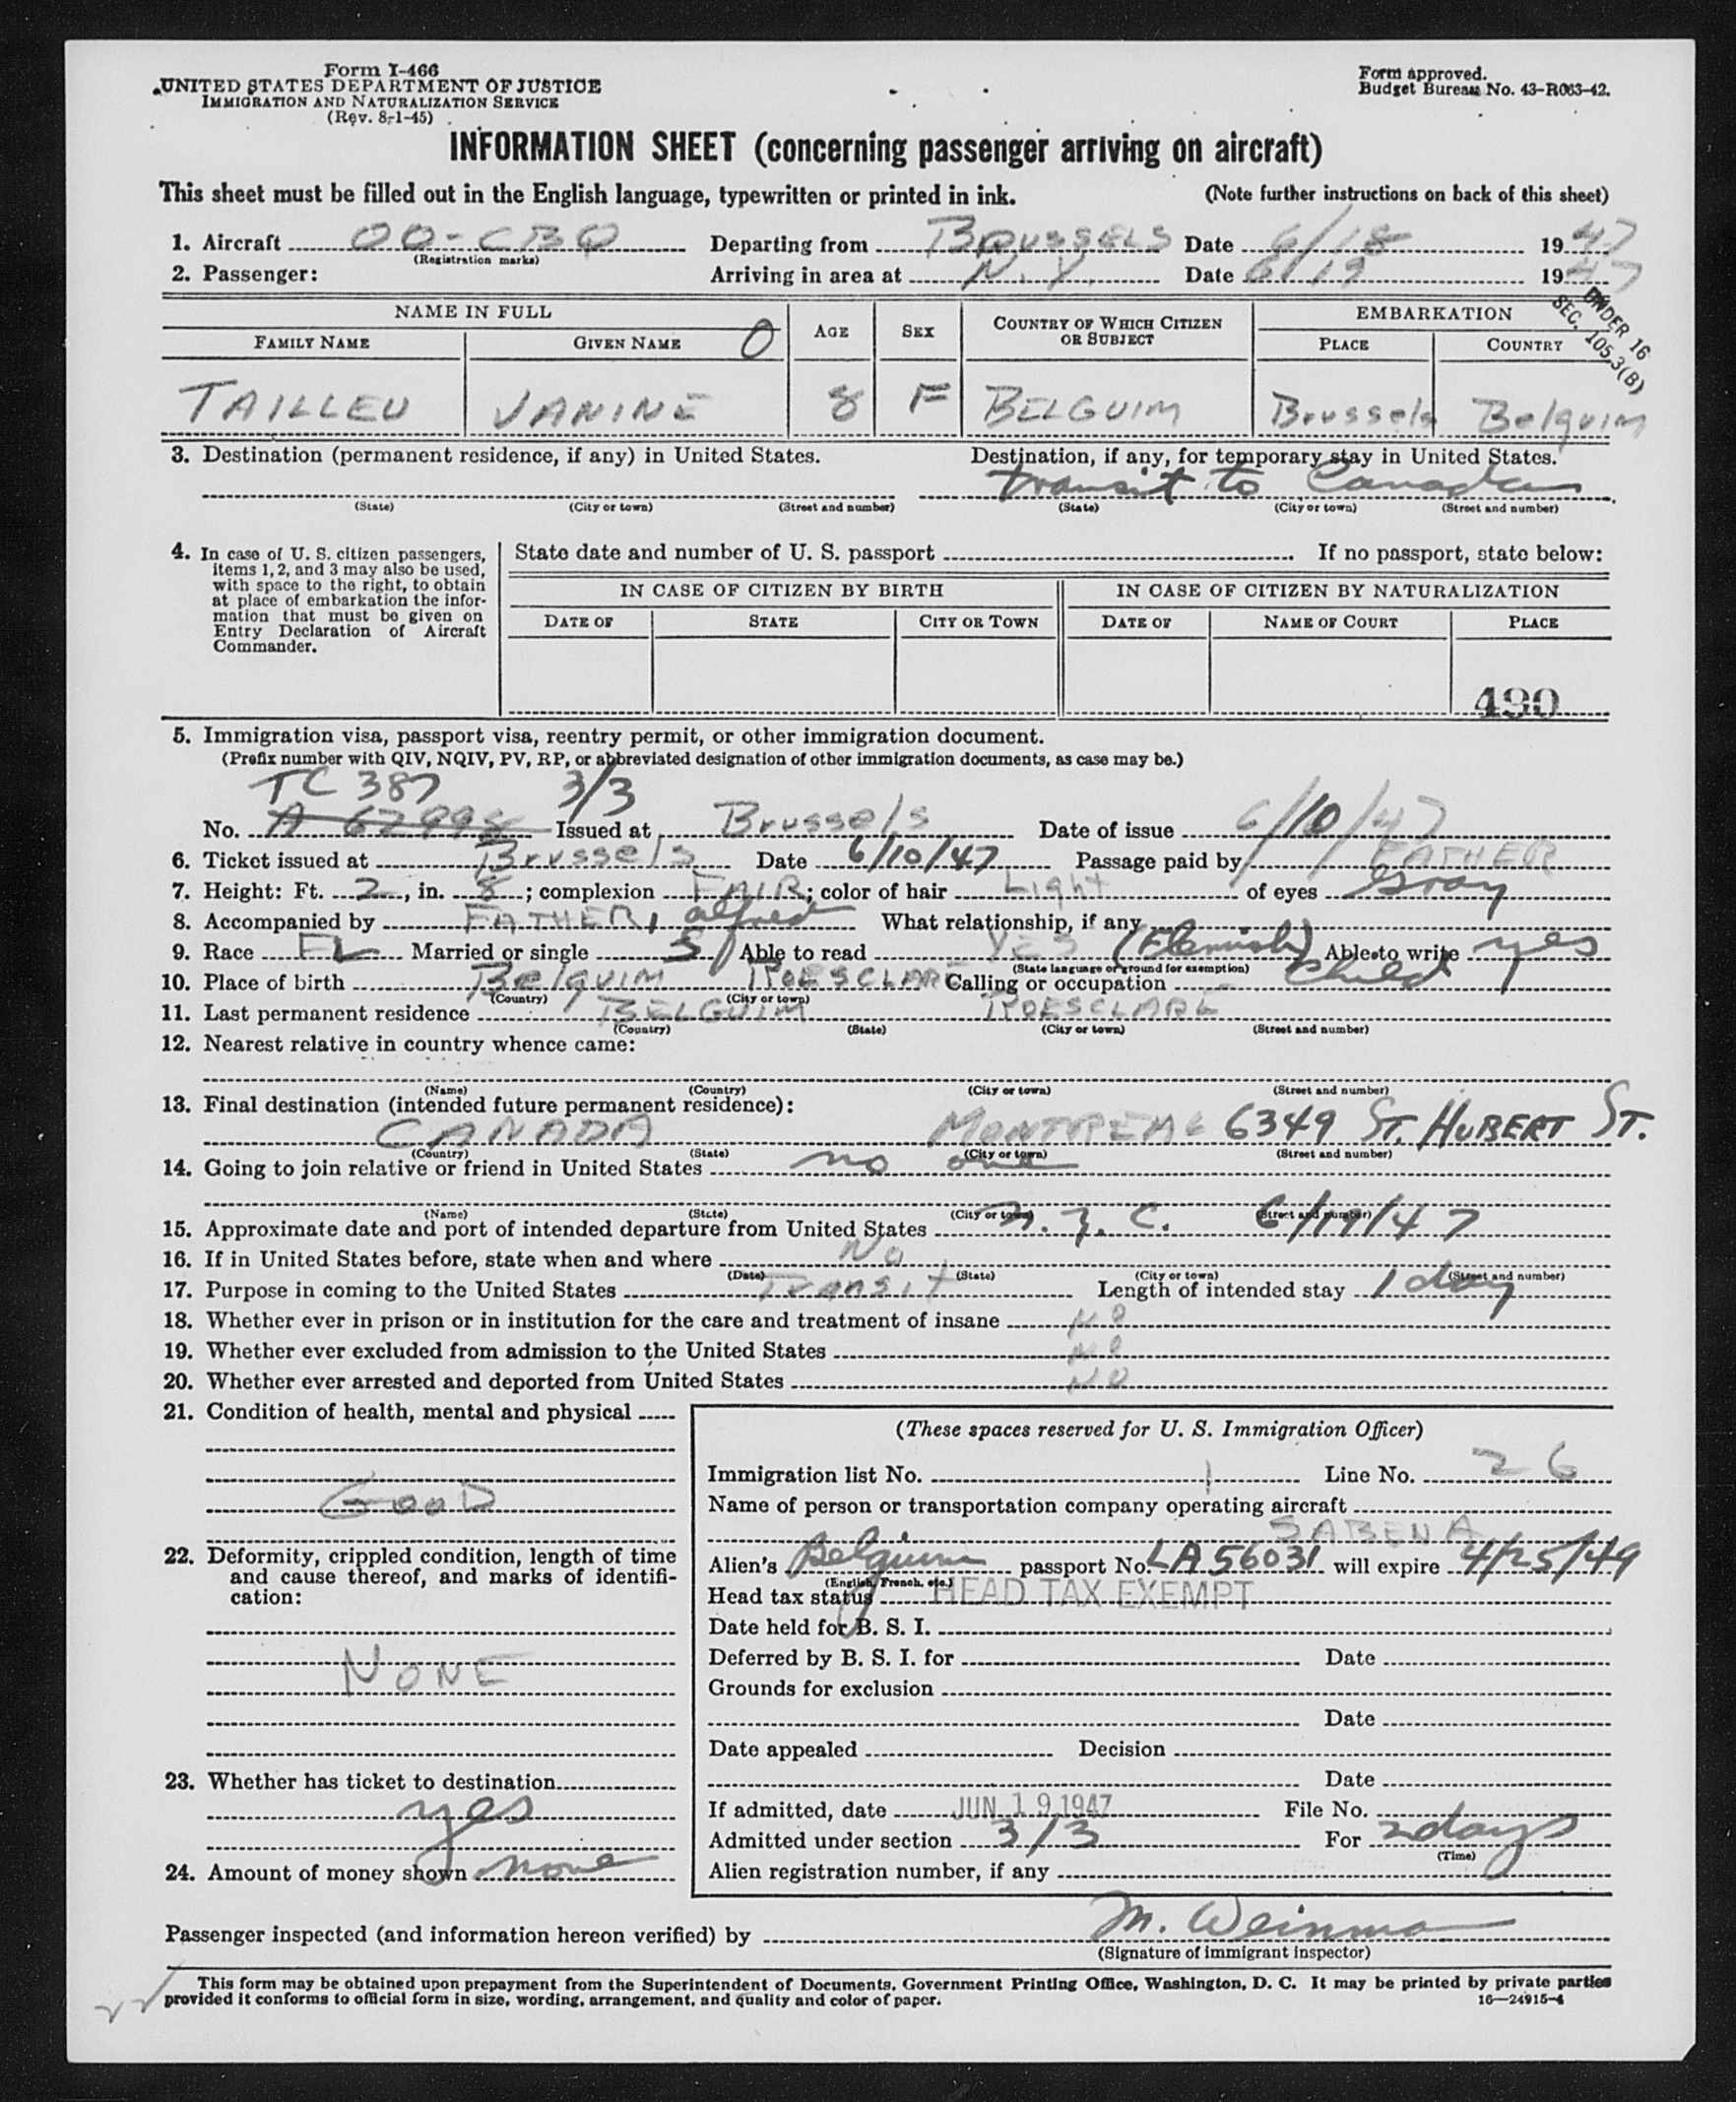 Form I-466
UNITED STATES DEPARTMENT OF JUSTICE
IMMIGRATION AND NATURALIZATION SERVICE
(Rev. 8-1-45)
Form approved.
Budget Bureau No. 43-R063-42.
INFORMATION SHEET (concerning passenger arriving on aircraft)
This sheet must be filled out in the English language, typewritten or printed in ink. (Note further instructions on back of this sheet)
1. Aircraft OO-CBQ Departing from BRUSSELS Date 6/18 1947
(Registration marks)
2. Passenger: Arriving in area at N.Y. Date 6/19 1947
UNDER 16
SEC. 105.3(B)
NAME IN FULL AGE SEX COUNTRY OF WHICH CITIZEN OR SUBJECT EMBARKATION
FAMILY NAME GIVEN NAME O PLACE COUNTRY
TAILLEU JANINE 8 F BELGUIM Brussels Belguim
3. Destination (permanent residence, if any) in United States. Destination, if any, for temporary stay in United States.
transit to Canada
(State) (City or town) (Street and number) (State) (City or town) (Street and number)
4. In case of U. S. citizen passengers, items 1, 2, and 3 may also be used, with space to the right, to obtain at place of embarkation the information that must be given on Entry Declaration of Aircraft Commander.
State date and number of U. S. passport If no passport, state below:
IN CASE OF CITIZEN BY BIRTH IN CASE OF CITIZEN BY NATURALIZATION
DATE OF STATE CITY OR TOWN DATE OF NAME OF COURT PLACE
490
5. Immigration visa, passport visa, reentry permit, or other immigration document.
(Prefix number with QIV, NQIV, PV, RP, or abbreviated designation of other immigration documents, as case may be.)
TC 387 3/3
No. A 62998 Issued at Brussels Date of issue 6/10/47
6. Ticket issued at Brussels Date 6/10/47 Passage paid by FATHER
7. Height: Ft. 2, in. 8; complexion FAIR; color of hair Light of eyes Gray
8. Accompanied by FATHER, alfred What relationship, if any
9. Race FL Married or single S Able to read YES (Flemish) Able to write yes
(State language or ground for exemption)
10. Place of birth Belguim ROESCLARE Calling or occupation child
(Country) (City or town)
11. Last permanent residence BELGUIM ROESCLARE
(Country) (State) (City or town) (Street and number)
12. Nearest relative in country whence came:
(Name) (Country) (City or town) (Street and number)
13. Final destination (intended future permanent residence):
CANADA MONTREAL 6349 ST. HUBERT ST.
(Country) (State) (City or town) (Street and number)
14. Going to join relative or friend in United States no one
(Name) (State) (City or town) (Street and number)
15. Approximate date and port of intended departure from United States N.Y.C. 6/19/47
16. If in United States before, state when and where No
(Date) (State) (City or town) (Street and number)
17. Purpose in coming to the United States Transit Length of intended stay 1 day
18. Whether ever in prison or in institution for the care and treatment of insane NO
19. Whether ever excluded from admission to the United States NO
20. Whether ever arrested and deported from United States NO
21. Condition of health, mental and physical
GOOD
22. Deformity, crippled condition, length of time and cause thereof, and marks of identification:
NONE
23. Whether has ticket to destination
yes
24. Amount of money shown none
(These spaces reserved for U. S. Immigration Officer)
Immigration list No. 1 Line No. 26
Name of person or transportation company operating aircraft
SABENA
Alien's Belguim passport No. LA 56031 will expire 4/25/49
(English, French, etc.)
Head tax status HEAD TAX EXEMPT
Date held for B. S. I.
Deferred by B. S. I. for Date
Grounds for exclusion
Date
Date appealed Decision
Date
If admitted, date JUN 19 1947 File No.
Admitted under section 3/3 For 2 days
(Time)
Alien registration number, if any
Passenger inspected (and information hereon verified) by M. Weinman
(Signature of immigrant inspector)
This form may be obtained upon prepayment from the Superintendent of Documents, Government Printing Office, Washington, D. C. It may be printed by private parties
provided it conforms to official form in size, wording, arrangement, and quality and color of paper. 16—24915-4